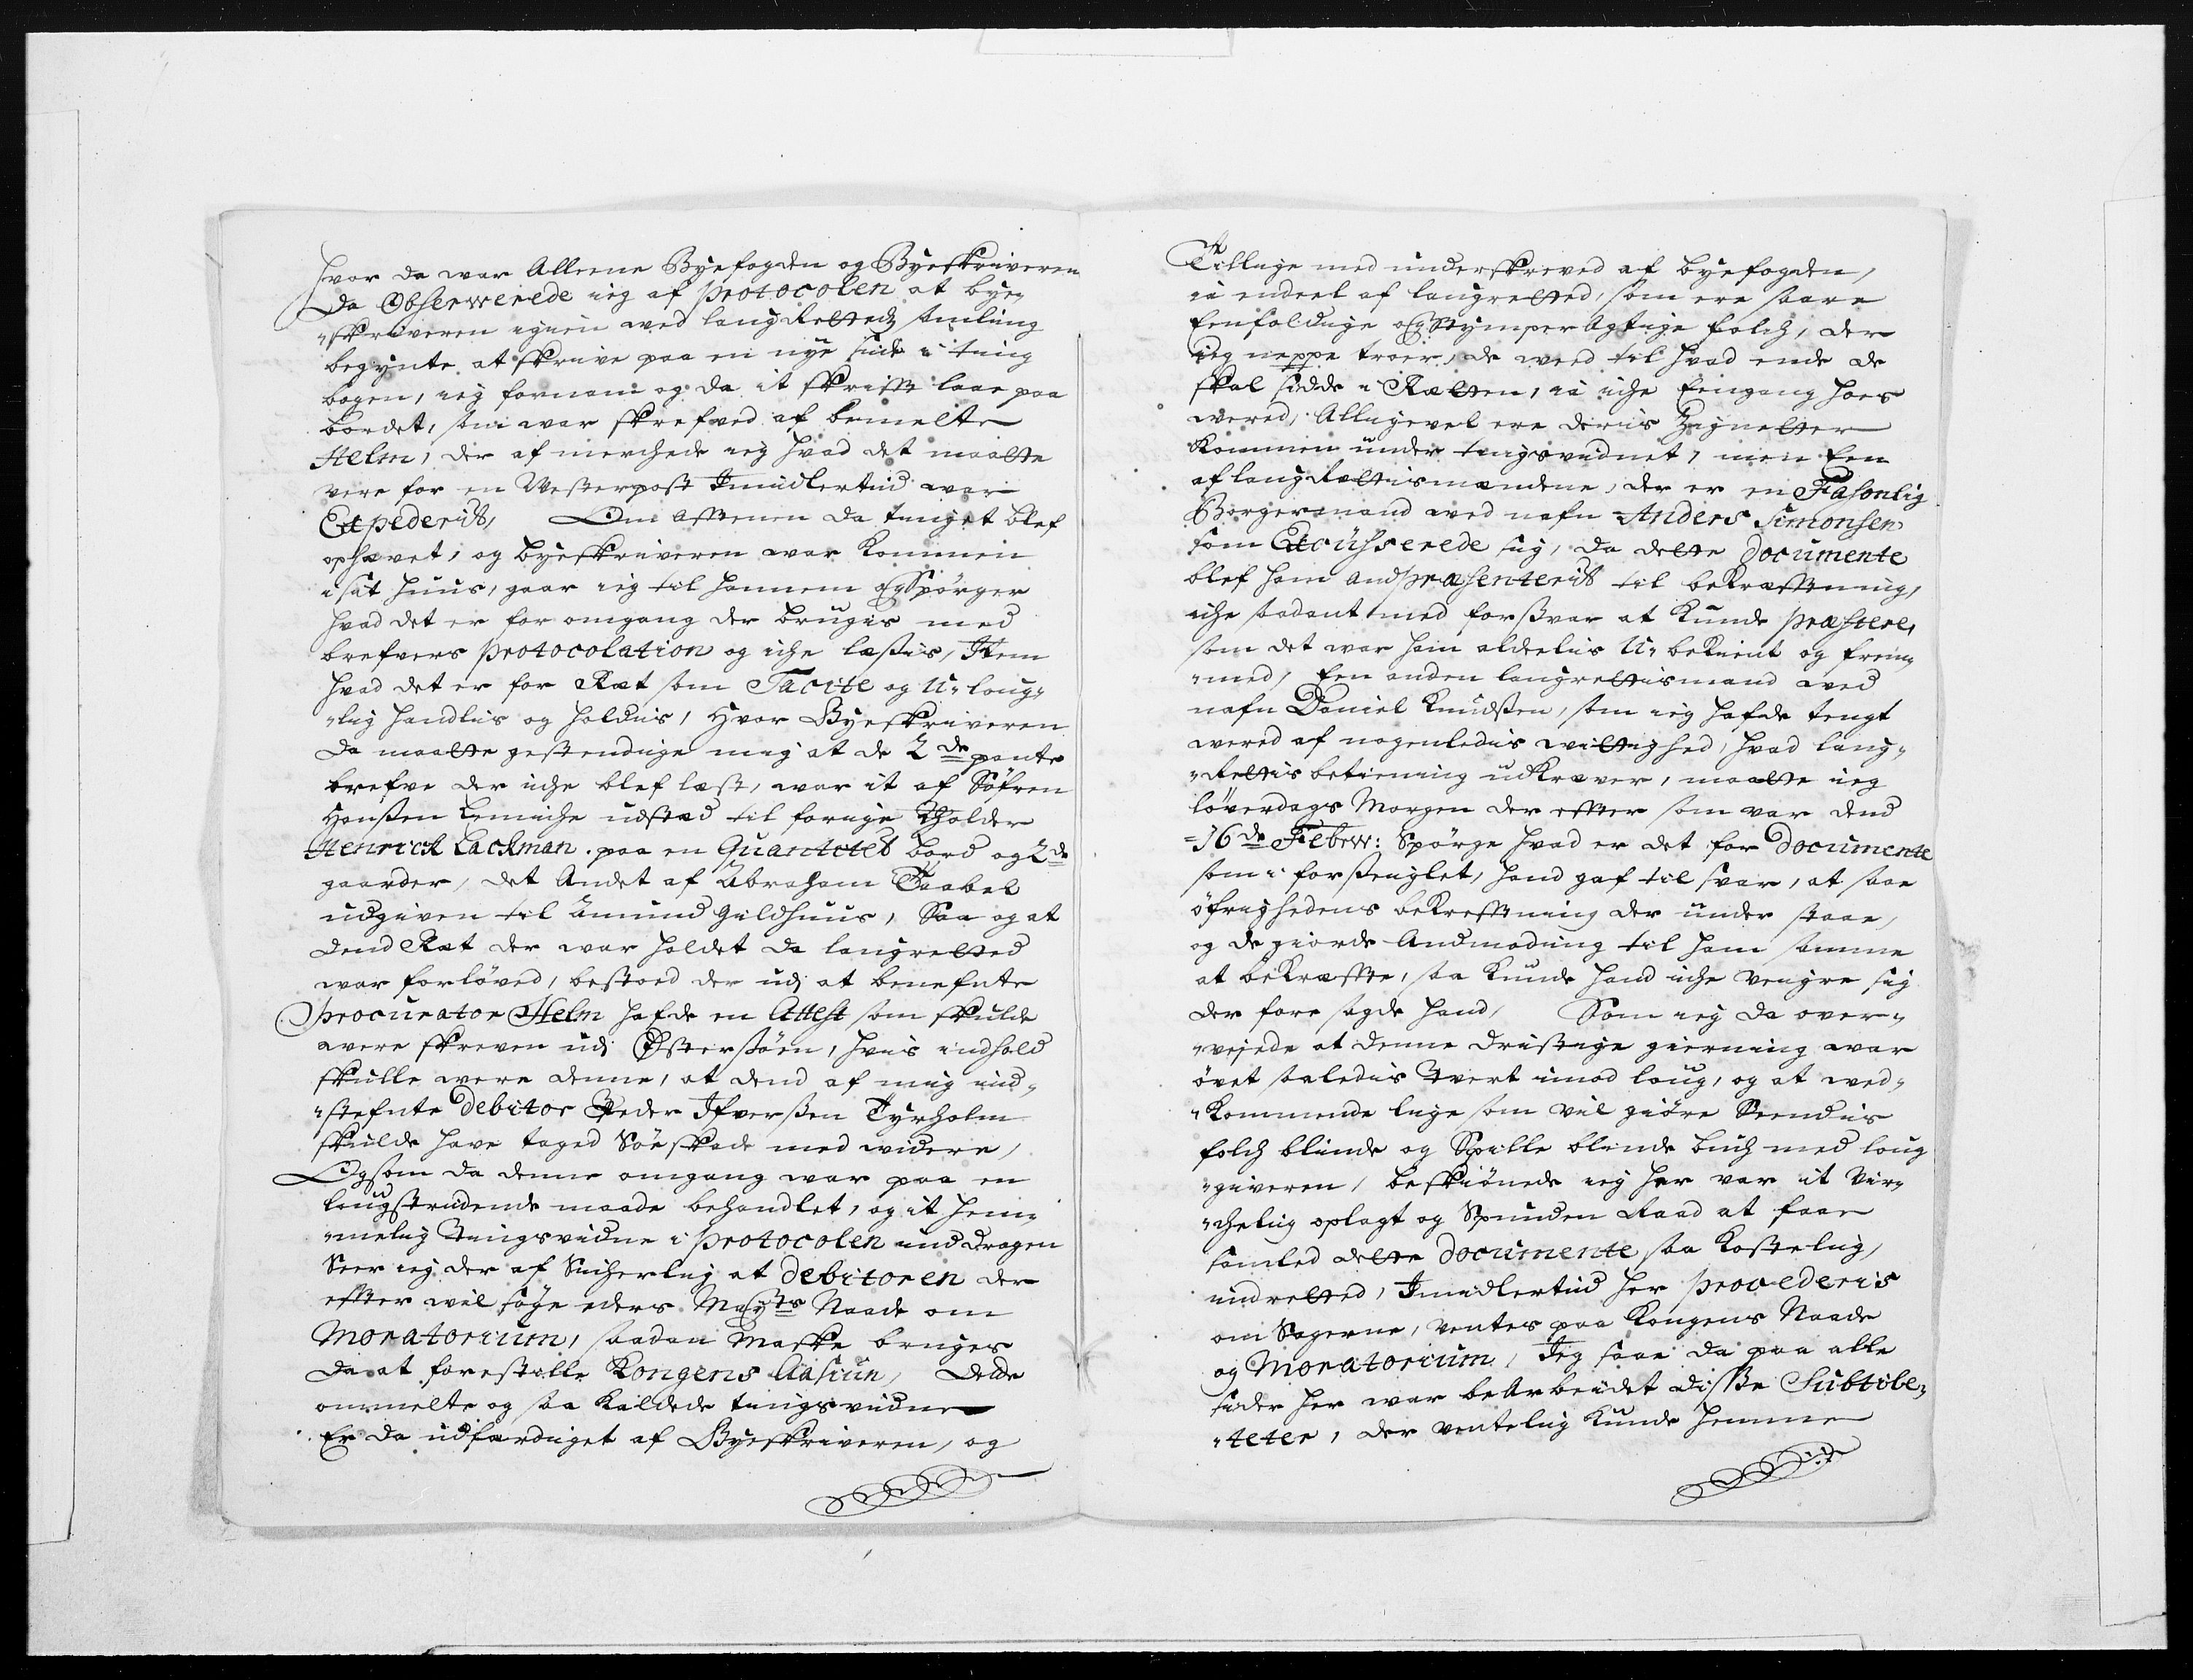 hvor da war Alleene Byefogden og Byeskriveren
Da Obserwerede ieg af protocolen at bye„
„skriveren igien wed laugRettedz samling
begynte at skrive paa en nye side i ting
bogen, ieg fornam og da it skrifft laae paa
bordet, som war skrefved af bemelte
Helm, der af merchede ieg hvad det maatte
vere for en Westerpost Imidlertiid war
Expederit, Om afftenen da tinget blef
ophævet, og byeskriveren war kommen
i sit huus, gaar ieg til hannem og Spörger
hvad det er for omgang der bruges med
brefvers protocolation og iche læsis, Item
hvad det er for Ræt som Tacite og U„loug„
„lig handlis og holdis, Hvor Byeskriveren
da maatte gestendige mig at de 2de pante
brefve der iche blef læst, war it af Söfren
Hanssen Lemiche udsted til forige Tholder
Henrick Lackman paa en Quantitet bord og 2de
gaarder, det Andet af Abraham Taabel
udgiven til Amund Gildhuus, Saa og at
dend Ræt der war holdet da laugretted
war forlöved, bestoed der udj at benefnte
procurator Helm hafde en Attest som skulde
were skreven udj Östersöen, hvis indhold
skulle were denne, at dend af mig ind„
„stefnte Debitor Peder Ifverssen Tyrholm
skulde have taged Söeskade med widere,
Og som da denne omgang war paa en
lougstridende maade behandlet, og it hem„
„melig Tingsvidne i protocolen inddragen
Seer ieg der af Sicherlig at Debitoren der
effter wil söge eders Maÿts Naade om
Moratorium, saadan Maske bruges
da at forestille Kongens Aasiun, Dette
ommelte og saa kaldede tingsvidne
Er da udfærdiget af Byeskriveren, og
Tillige med underskreved af byefogden,
ia endeel af laugretted, som ere saare
Eenfoldige og Stymper Agtige folch, der
ieg neppe troer, de weed til hvad ende de
skal sidde i Rætten, ia iche Eengang hoes
wered, Alligevel ere deris Zignetter
kommen under tingsvidnet, men Een
af laugRættismændene, der er en Fasonlig
Borgermand wed nafn Anders Simonsen
som Excusserede sig, da dette documente
blef ham andpræsenterit til bekrafftening,
iche saadant med forsvar at kunde præstere,
som det war ham aldeelis U„bekient og frem„
„med, Een anden laugrettismand wed
nafn Daniel Knudssen, som ieg hafde tengt
wered af nogenledis wittighed, hvad laug„
„Rettis betiening udkræver, maatte ieg
löverdags Morgen der effter som var dend
16de Febrw: Spörge hvad er det for documente
som i forsseiglet, hand gaf til svar, at saae
öfrighedens bekrefftning der under staae,
og de giorde Andmoding til ham samme
at bekræffte, saa kunde hand iche veigre sig
der fore sagde hand, Som ieg da over„
„vejede at denne dristige gierning war
övet saaledis Tvert imod loug, og at wed„
„kommende lige som vil giöre Seendis
folch blinde og Spille blinde buch med loug
„giveren, beskiönede ieg her var it Vir„
„chelig oplagt og Spunden Raad at faae
samled dette documente saa kostelig,
indretted, Imidlertiid her procederis
om Sagerne, ventes paa Kongens Naade
og Moratorium, Jeg saae da paa alle
sider her war beArbeidet disse Subtile„
„teter, der ventelig kunde hemme